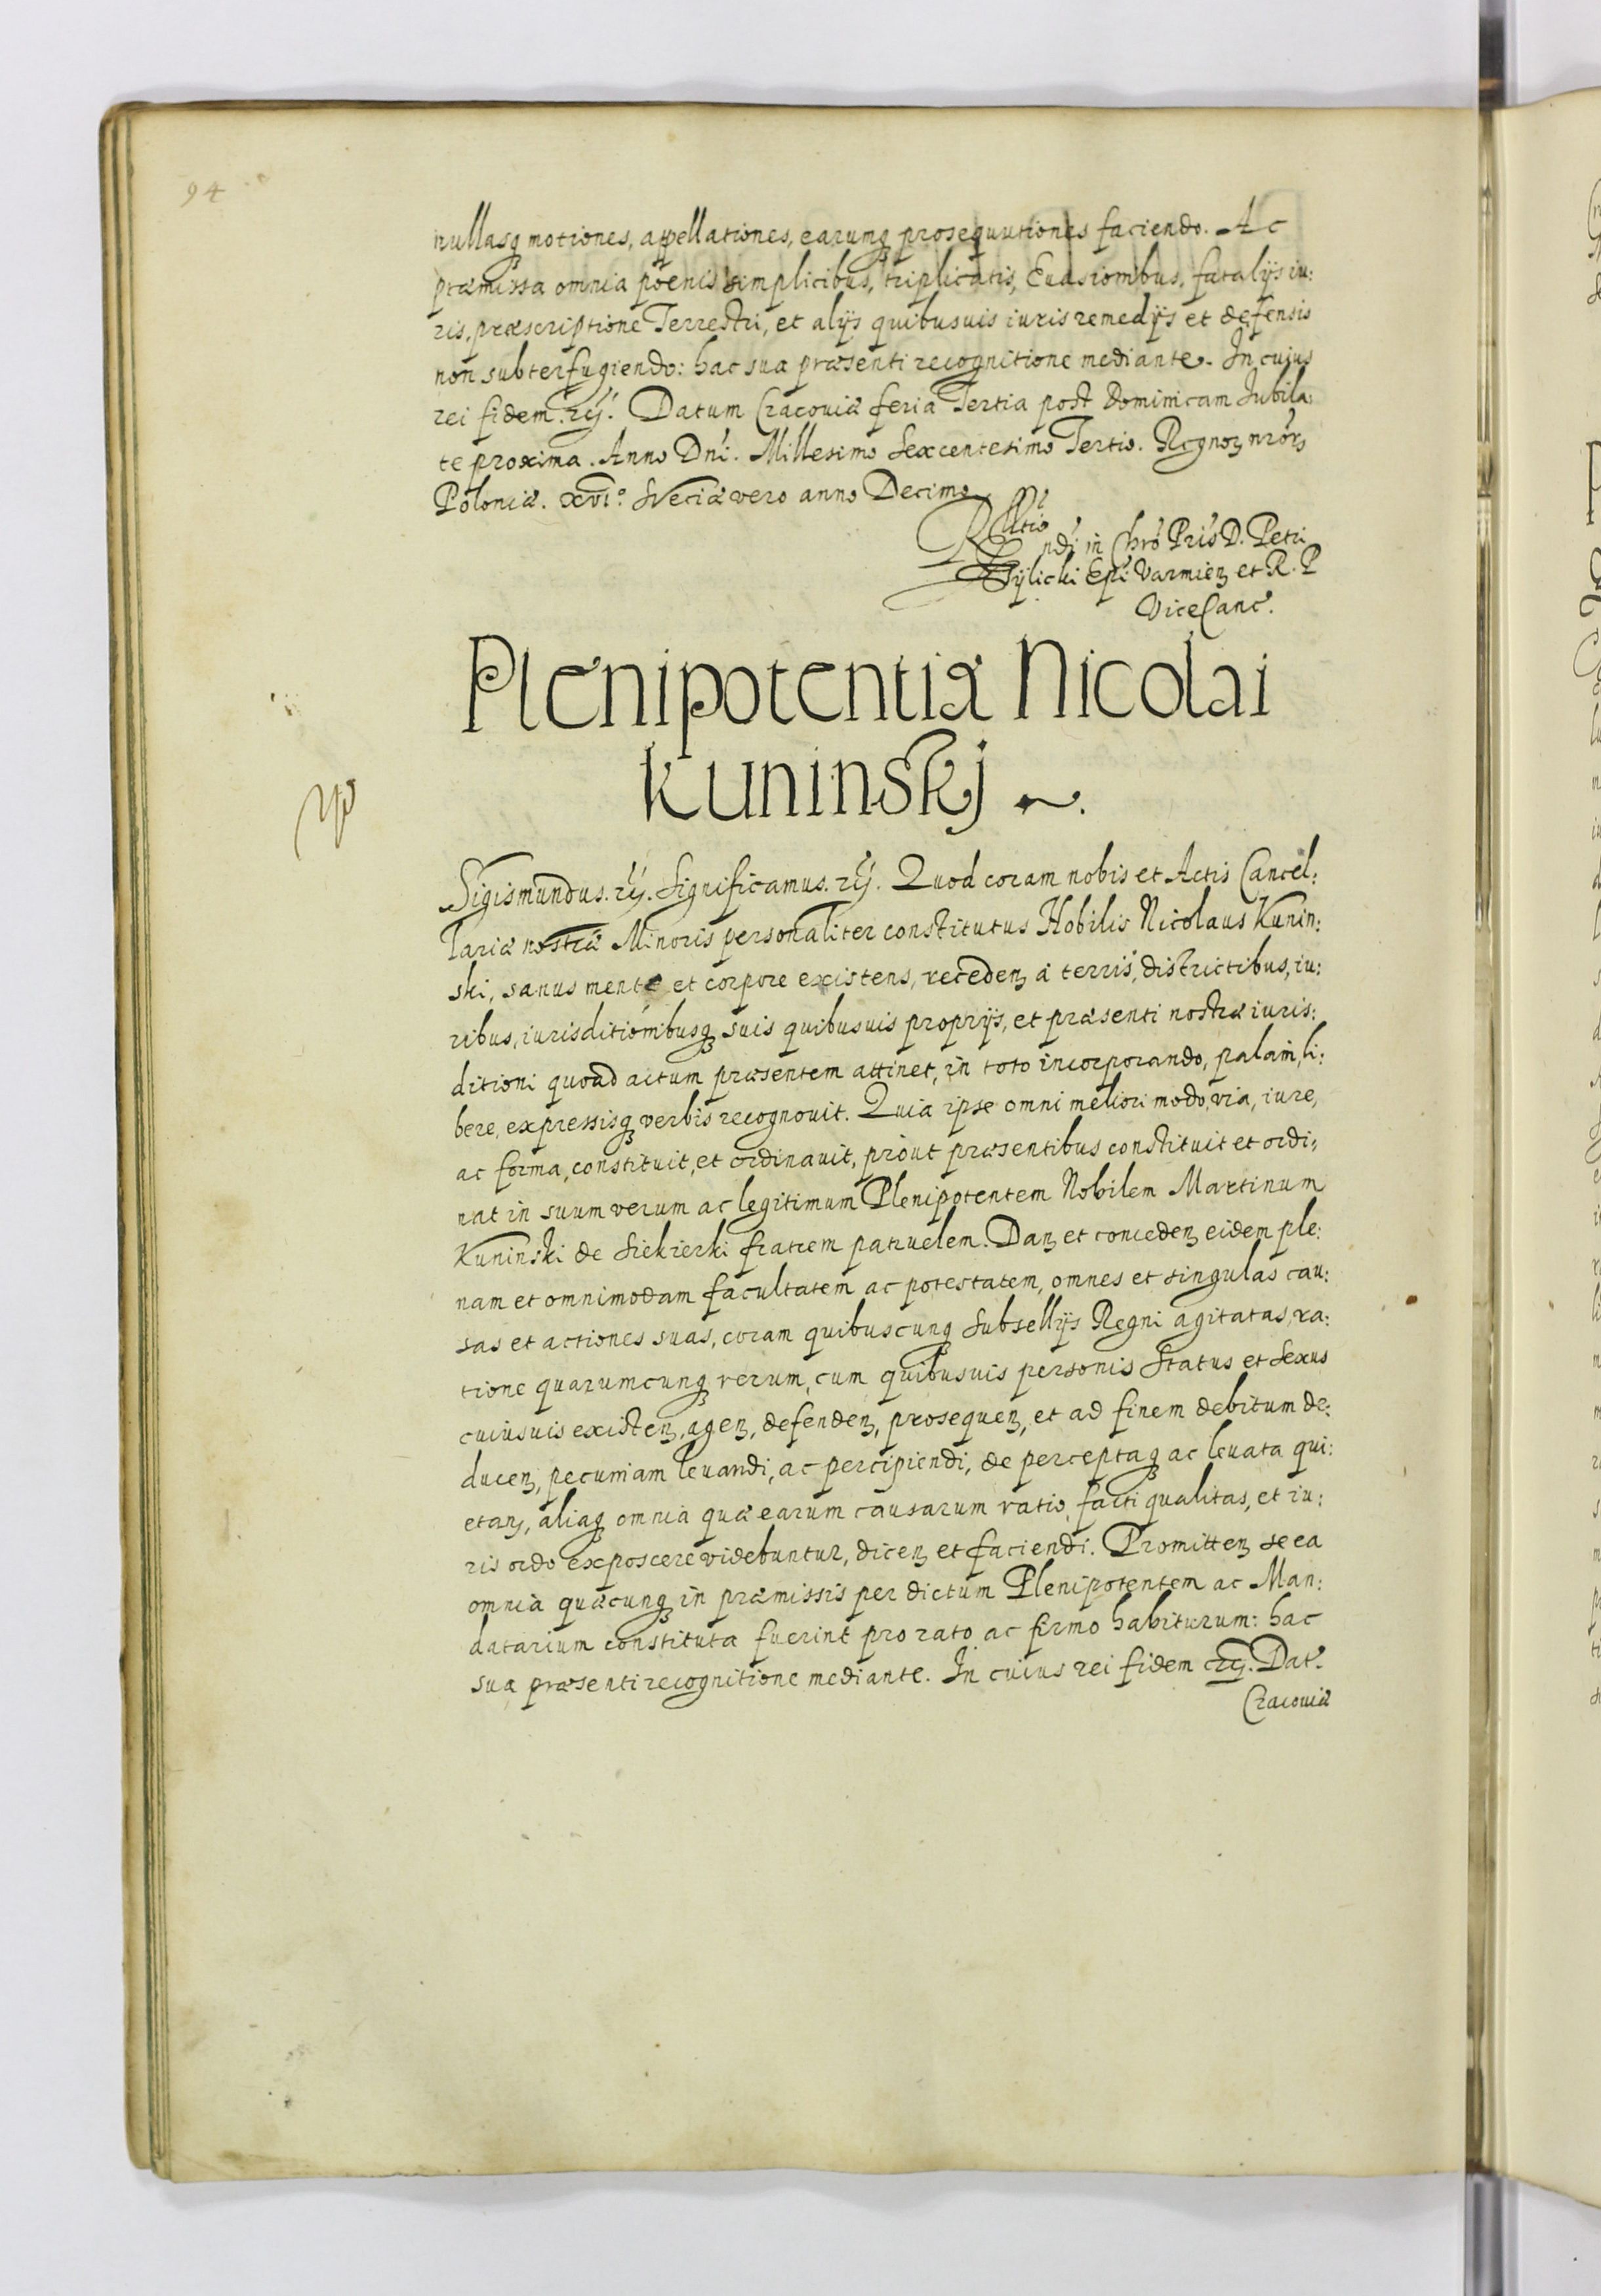 94
nullasq motiones, appellationes, earumq prosequutiones faciendo. Ac
præmissa omnia poenis simplicibus, triplicatis, Euasionibus, fatalijs iu:
ris, præscriptione Terrestri, et alijs quibusuis iuris remedijs et defensis
non subterfugiendo: hac sua præsenti recognitione mediante. In cuius
rei fidem. rÿ. Datum Cracouiæ feria Tertia post Dominicam Iubila:
te proxima. Anno Dni. Millesimo Sexcentesimo Tertio. Regnoꝝ nroꝝ
Poloniæ. xvi.° Sveciæ vero anno Decimo
Rltio
ndi in Chro Pris D. Petri
Tylicki Epi Varmieꝫ et R. P
ViceCanc.
Plenipotentia Nicolai
Kuninskj
Sigismundus. rÿ. Significamus. rÿ. Quod coram nobis et Actis Cancel:
lariæ nostræ Minoris personaliter constitutus Nobilis Nicolaus Kunin:
ski, sanus mente et corpore existens, recedeꝫ à terris, districtibus, iu:
ribus, iurisditionibusq suis quibusuis proprijs, et præsenti nostræ iuris:
ditioni quoad actum præsentem attinet, in toto incorporando, palam, li:
bere, expressisq verbis recognouit. Quia ipse omni meliori modo, via, iure,
ac forma, constituit, et ordinauit, prout præsentibus constituit et ordi:
nat in suum verum ac legitimum Plenipotentem Nobilem Martinum
Kuninski de Siekierki fratrem patruelem. Daꝫ et concedeꝫ eidem ple:
nam et omnimodam facultatem ac potestatem, omnes et singulas cau:
sas et actiones suas, coram quibuscunq Subsellijs Regni agitatas, ra:
tione quarumcunq rerum, cum quibusuis personis Status et Sexus
cuiusuis existeꝫ, ageꝫ, defendeꝫ, prosequeꝫ, et ad finem debitum de:
duceꝫ, pecuniam leuandi, ac percipiendi, de perceptaq ac leuata qui:
etaꝫ, aliaq omnia quæ earum causarum ratio, facti qualitas, et iu:
ris ordo exposcere videbuntur, diceꝫ et faciendi. Promitteꝫ se ea
omnia quæcunq in præmissis per dictum Plenipotentem ac Man:
datarium constituta fuerint pro rato ac firmo habiturum: hac
sua præsenti recognitione mediante. In cuius rei fidem rÿ. Dat.
Cracouiæ